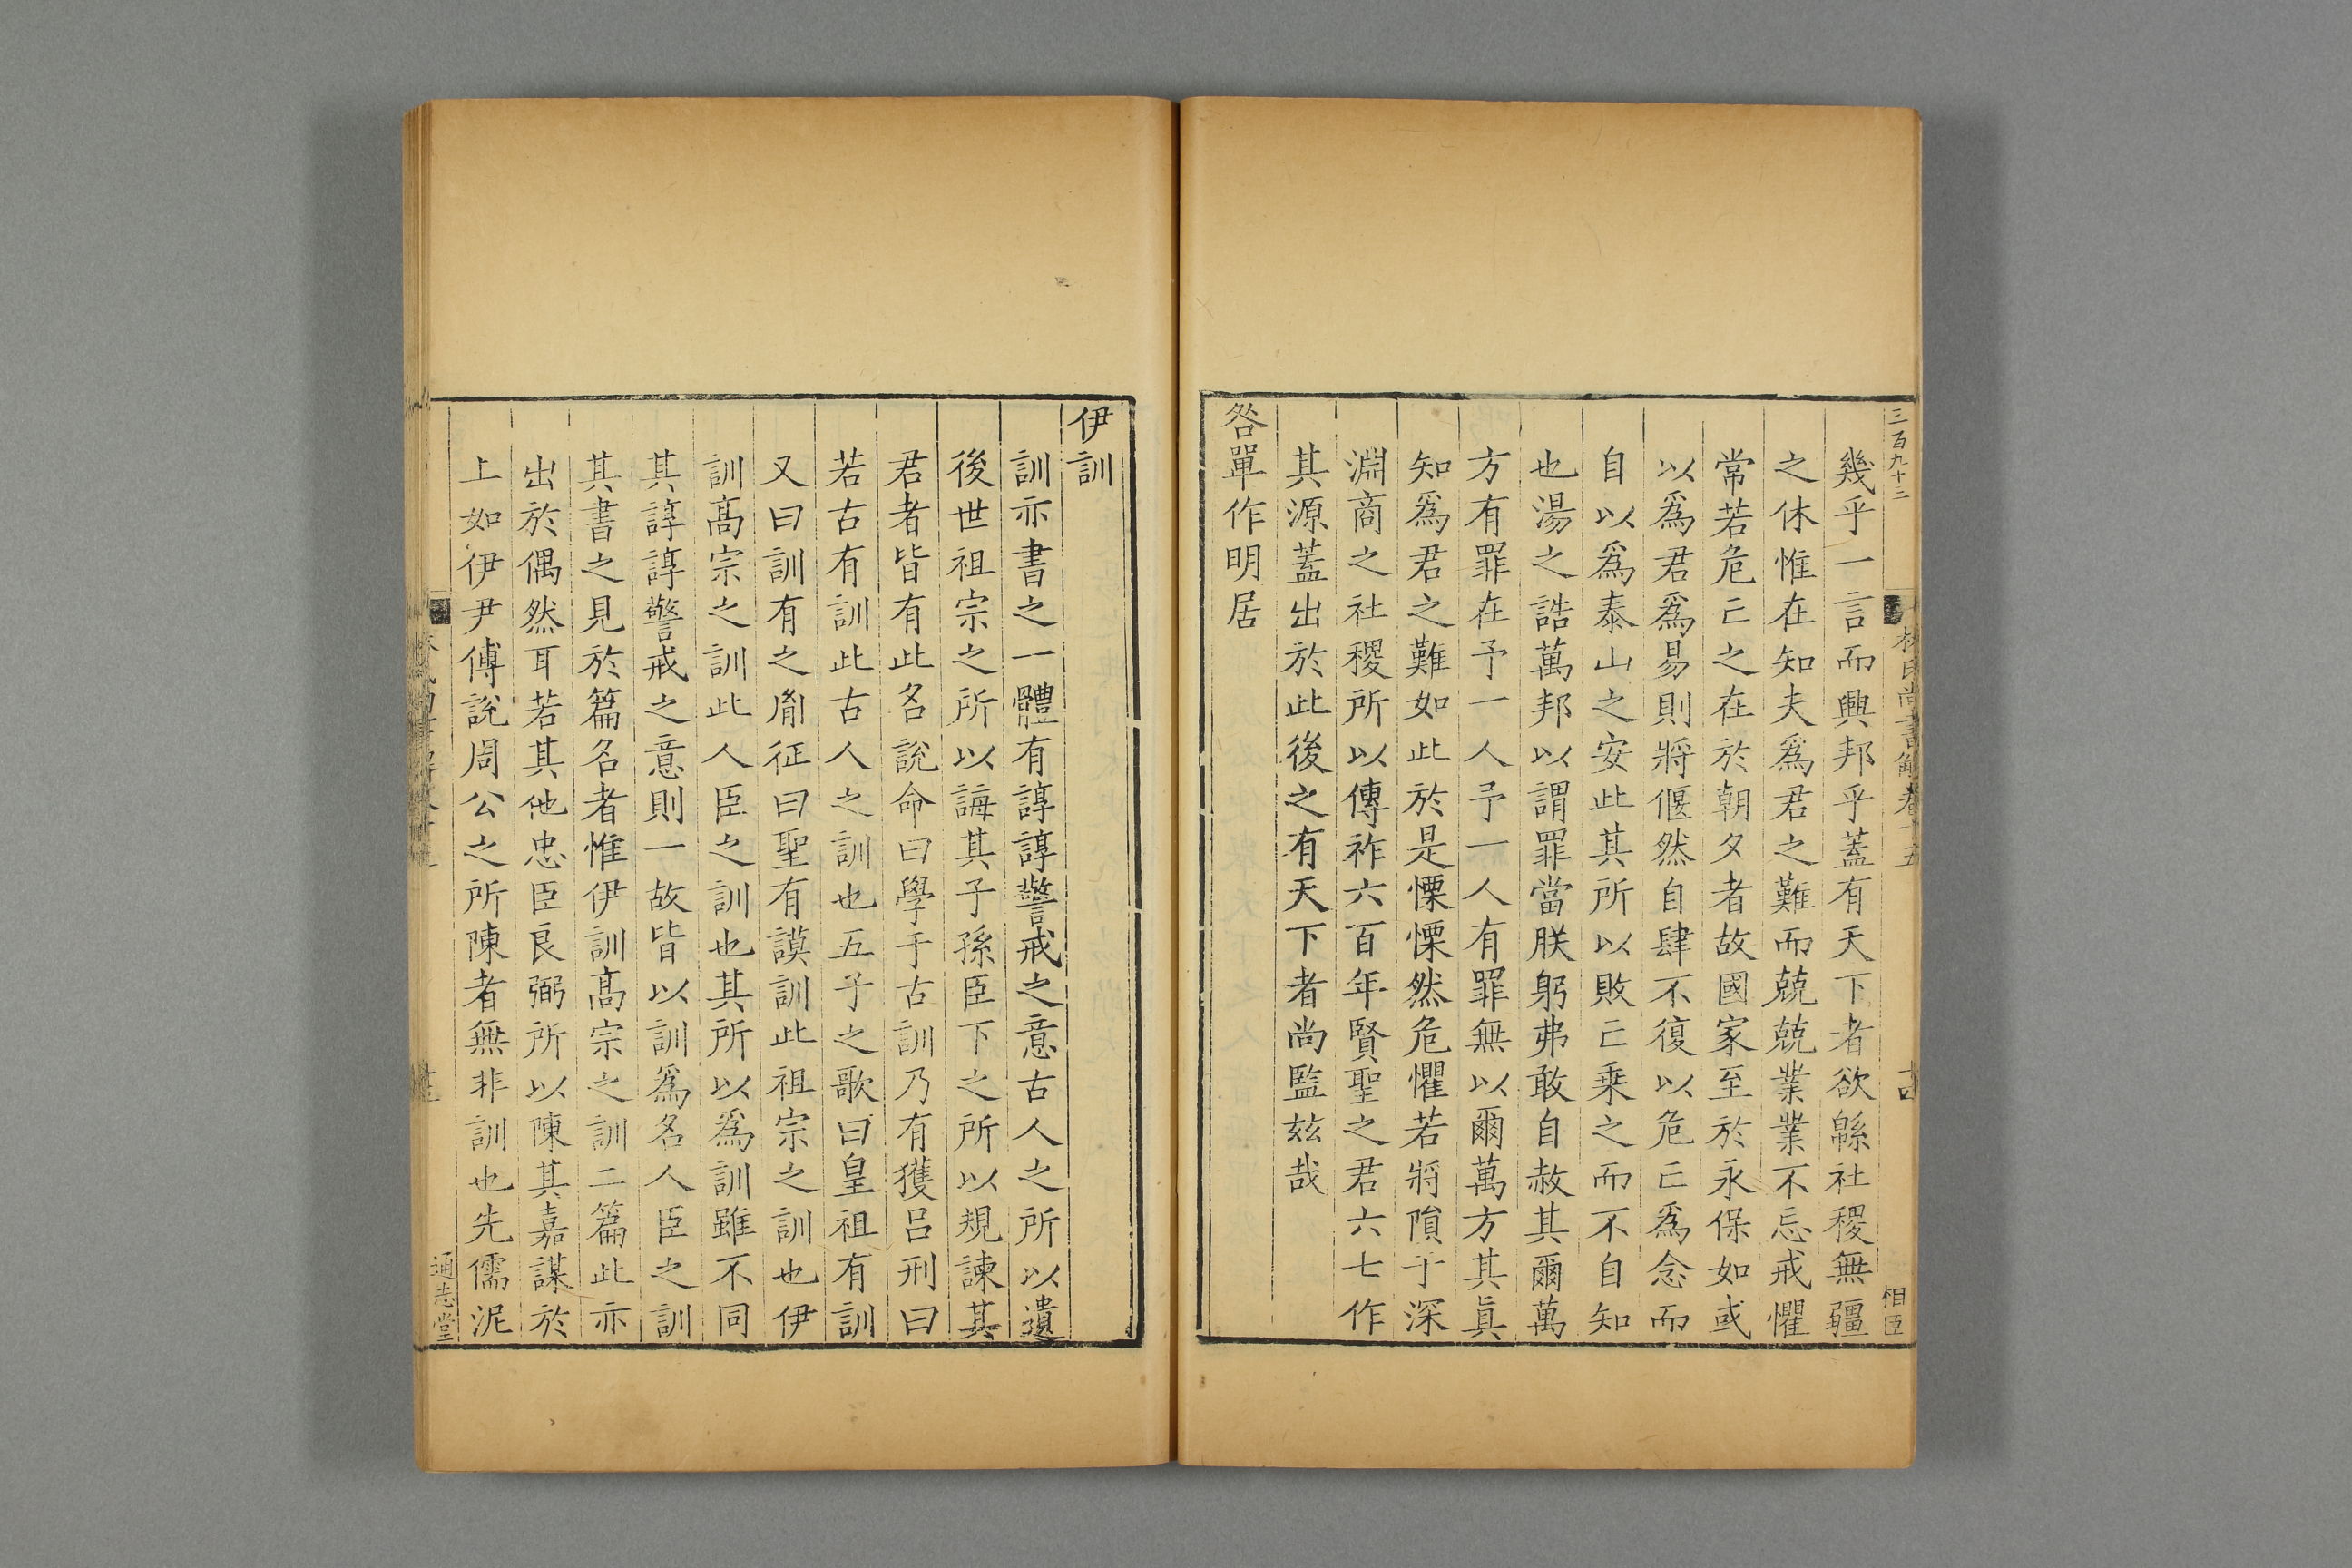 三百九十三
林氏尚書解卷十五
十四
相臣
幾乎一言而興邦乎蓋有天下者欲緜社稷無疆
之休惟在知夫爲君之難而兢兢業業不忘戒懼
常若危亡之在於朝夕者故國家至於永保如或
以爲君爲易則將偃然自肆不復以危亡爲念而
自以爲泰山之安此其所以敗亡乘之而不自知
也湯之誥萬邦以謂罪當朕躬弗敢自赦其爾萬
方有罪在予一人予一人有罪無以爾萬方其眞
知爲君之難如此於是慄慄然危懼若將隕于深
淵商之社稷所以傳祚六百年賢聖之君六七作
其源蓋出於此後之有天下者尚監兹哉
咎單作明居
伊訓
訓亦書之一體有諄諄警戒之意古人之所以遺
後世祖宗之所以誨其子孫臣下之所以規諫其
君者皆有此名說命曰學于古訓乃有獲呂刑曰
若古有訓此古人之訓也五子之歌曰皇祖有訓
又曰訓有之胤征曰聖有謨訓此祖宗之訓也伊
訓高宗之訓此人臣之訓也其所以爲訓雖不同
其諄諄警戒之意則一故皆以訓爲名人臣之訓
其書之見於篇名者惟伊訓高宗之訓二篇此亦
出於偶然耳若其他忠臣良弼所以陳其嘉謀於
上如伊尹傅說周公之所陳者無非訓也先儒泥
通志堂